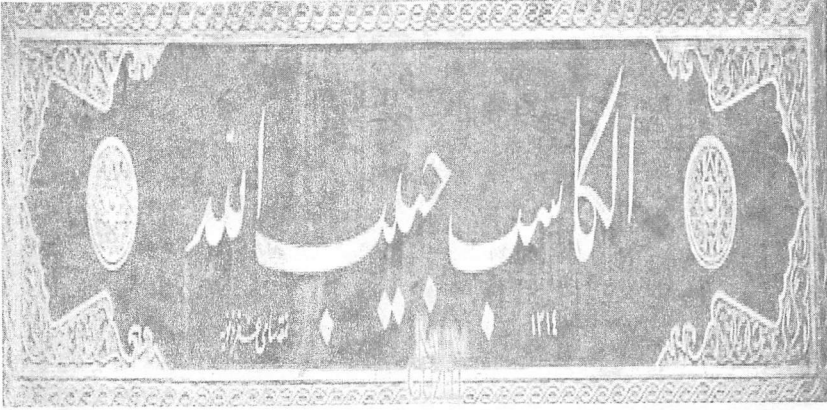 الكاسب حبيب الله
١٣١٤